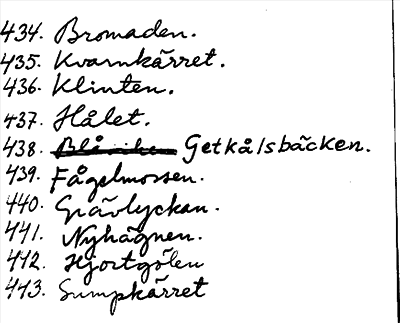 434. Bromaden.
435. Kvarnkärret.
436. Klinten.
437. Hålet.
438. Getkålsbäcken.
439. Fågelmossen.
440. Grävlyckan.
441. Nyhägnen.
442. Hjortgölen
443. Sumpkärret